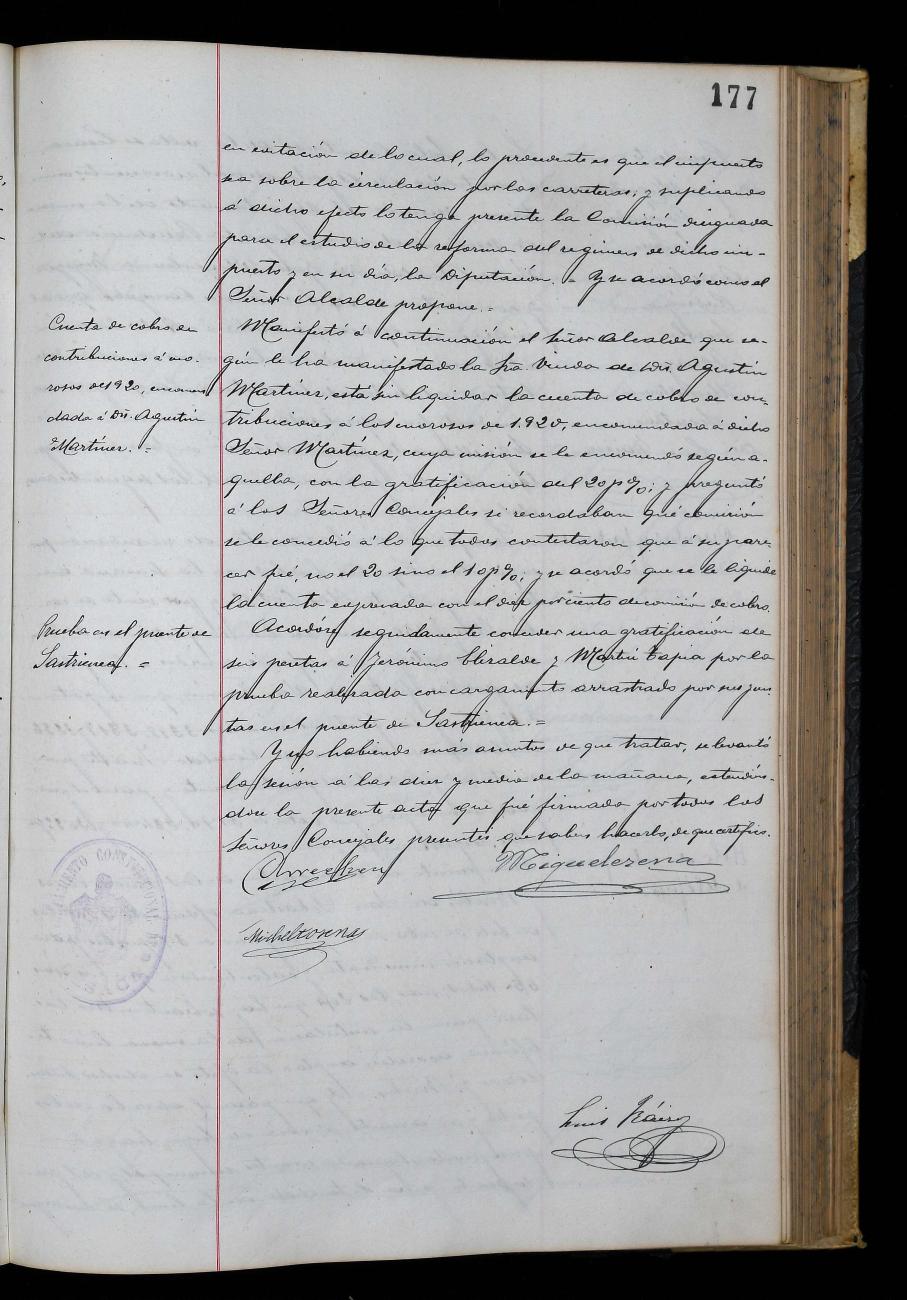 177
en evitación de lo cual, lo procedente es que el impuesto
sea sobre la circulación por las carreteras; y suplicando
á dicho efecto lo tenga presente la Comisión designada
para el estudio de la reforma del regimen de dicho im-
puesto y en su día, la Diputación. = Y se acordó como el
Señor Alcalde propone. =
Cuenta de cobro de
contribuciones á mo-
rosos de 1920, encomen
dada á Dn. Agustín
Martínez. =
Manifestó á continuación el Señor Alcalde que se-
gún le ha manifestado la Sra. Viuda de Dn. Agustín
Martínez, está sin liquidar la cuenta de cobro de con-
tribuciones á los morosos de 1.920, encomendada á dicho
Señor Martínez, cuya misión se le encomendó según a-
quella, con la gratificación del 20 p%; y preguntó
á los Señores Concejales si recordaban qué comisión
se le concedió á lo que todos contestaron que á su pare-
cer fué, no el 20 sino el 10 p%; y se acordó que se le liquide
la cuenta expresada con el diez por ciento de comisión de cobro.
Prueba en el puente de
Sastrienea. =
Acordóse seguidamente conceder una gratificación de
seis pesetas á Jerónimo Elizalde y Martín Tapia por la
prueba realizada con cargamento arrastrado por sus yun-
tas en el puente de Sastrienea. =
Y no habiendo más asuntos de que tratar, se levantó
la sesión á las diez y media de la mañana, extendién-
dose la presente acta que fué firmada por todos los
Señores Concejales presentes que saben hacerlo, de que certifico.
Miguelezena
Micheltorena
CONSTITUCIONAL
Luis